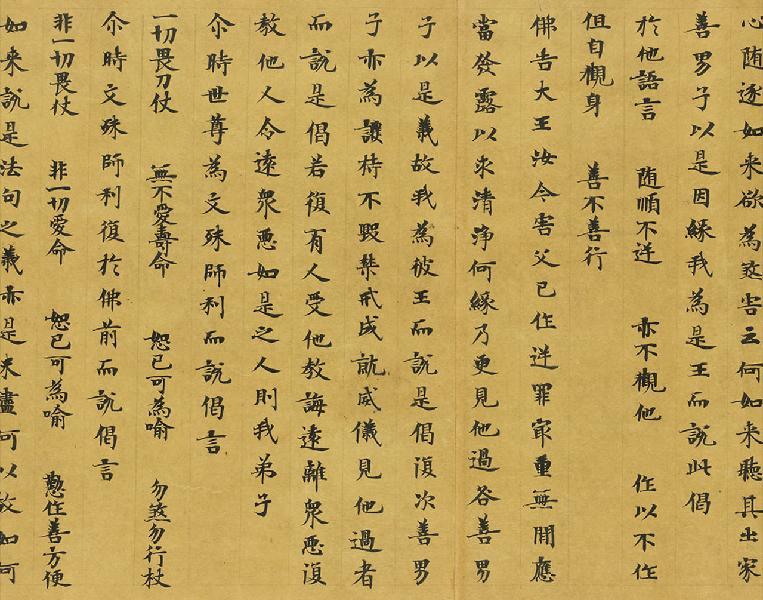 心随逐如来欲為逆害云何如来聴其出家
善男子以是因緣我為是王而說此偈
於他語言 随順不逆 亦不觀他 作以不作
但自觀身 善不善行
佛告大王汝今害父已作逆罪㝡重無閒應
當發露以求清淨何緣乃更見他過咎善男
子以是義故我為彼王而說是偈復次善男
子亦為護持不毀禁戒成就威儀見他過者
而說是偈若復有人受他教誨遠離衆惡復
教他人令遠衆惡如是之人則我弟子
尒時世尊為文殊師利而說偈言
一切畏刀杖 無不愛壽命 恕已可為喻 勿煞勿行杖
尒時文殊師利復於佛前而說偈言
非一切畏杖 非一切愛命 恕已可為喻 懃作善方便
如来說是法句之義亦是未盡可以故如何